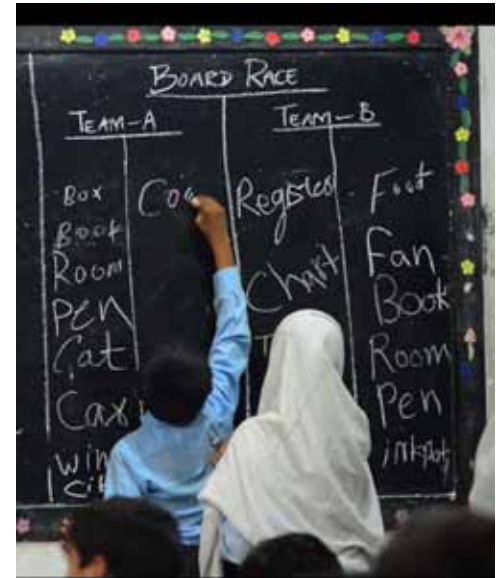 BOARD RACE
TEAM-A
Box
Book
Room
Pen
Cat
Car
win
Coo
TEAM-B
Register
Chart
Foot
Fan
Book
Room
Pen
inkpot